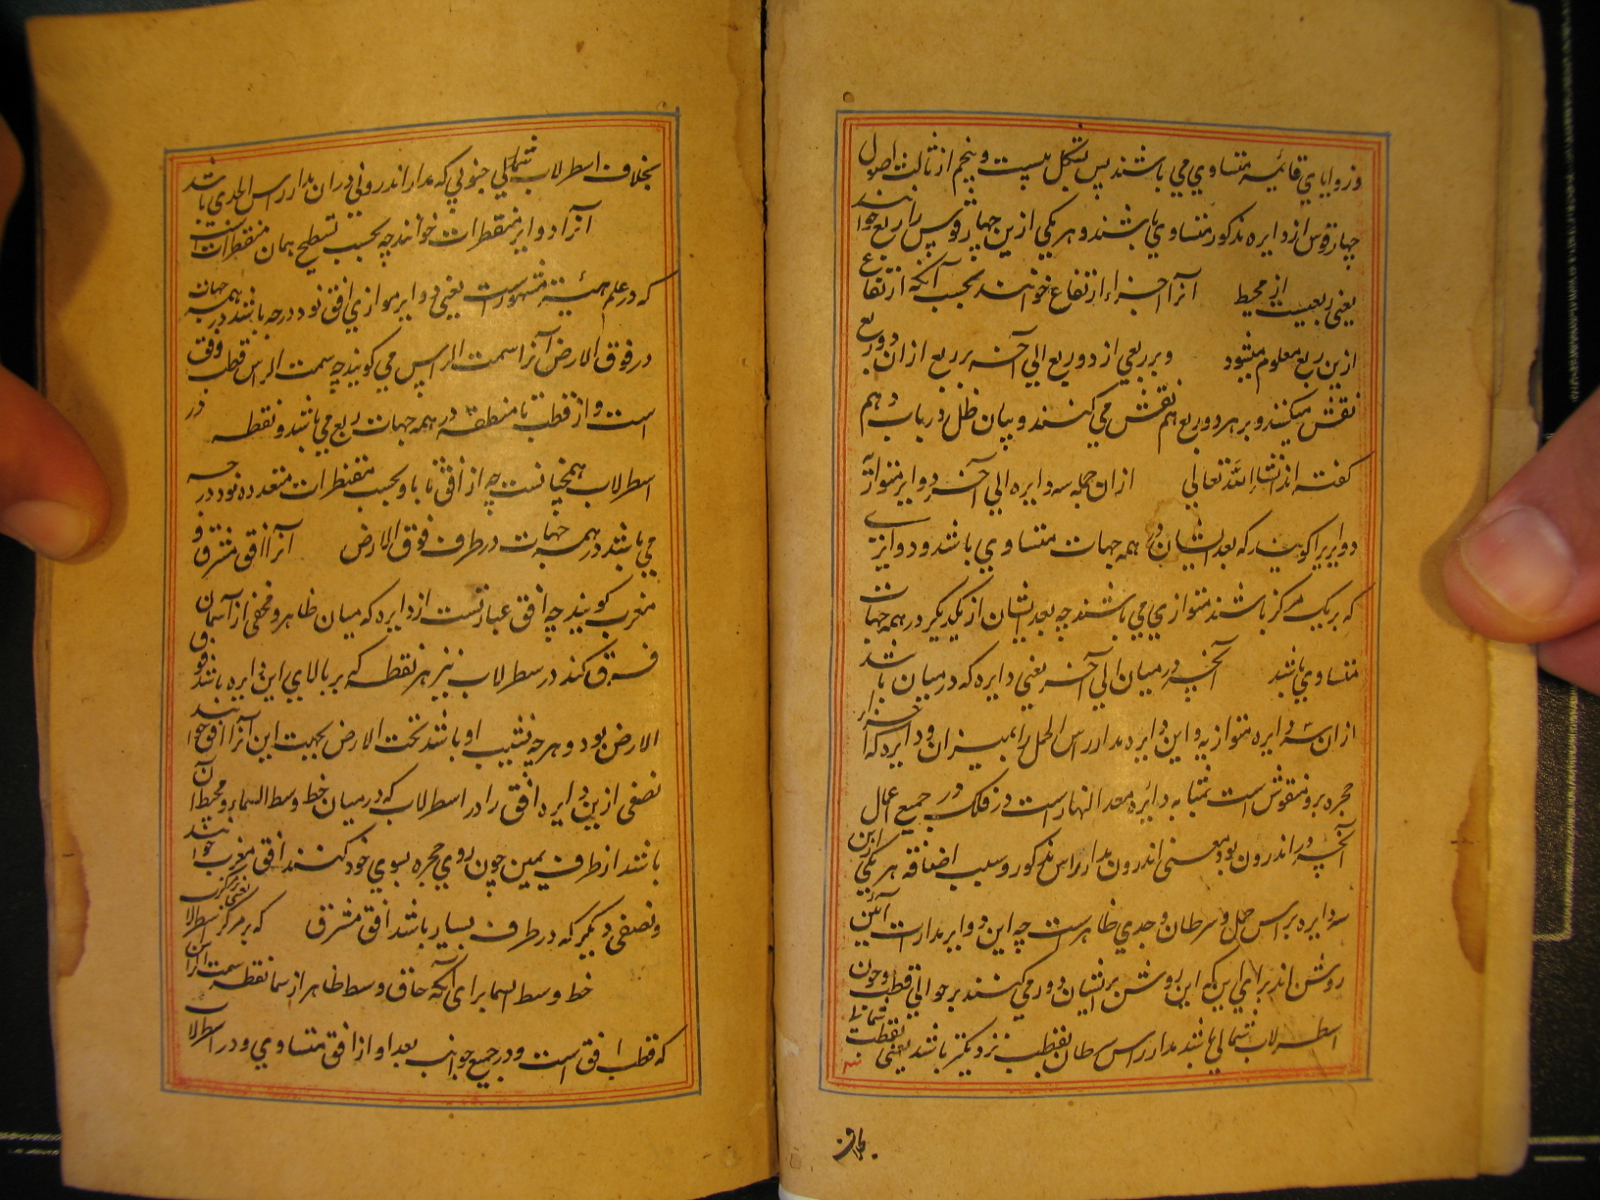 وزوایاي قائمه متساوي مي باشند پس بشکل بیست و پنجم از ثالث اصول
چهار قوس از دایره مذکور متساوي باشند و هر یکي ازین چهار قوس را ربع خوانند
یعنی ربعیست از محیط آنرا اجزاء ارتفاع خوانند بحسب آنکه ارتفاع
ازین ربع معلوم میشود و بر ربعي از دو ربع الي آخره بر ربع از ان دو ربع
نقش میکنند و بر هر دو ربع هم نقش مي کنند و بیان ظل در باب دهم
گفته اند انشاء الله تعالي از ان جمله سه دایره الي آخره دوایر متوازیه
دوایریرا گویند که بعد ایشان در همه جهات متساوي باشد و دوایری
که بر یک مرکز باشند متوازي مي باشند چه بعد ایشان از یکدیگر در همه جهات
متساوي باشد آنچه در میان الي آخره یعنی دایره که در میان باشد
از ان سه دایره متوازیه و این دایره مدار راس الحمل را بمیزان و دایره که اجزاء
حجره برو منقوش است بمثابه دائره معدل النهار است در فلک در جمیع اعمال
آنچه در اندرون بود یعنی اندرون مدار راس مذکور و سبب اضافه هر یکي این
سه دایره براس حمل و سرطان و جدي ظاهر است چه این دوایر مدارات این
روشن اند براي این که این روشن بر ایشان دور مي کنند بر حوالي قطب و چون
اسطرلاب شمالي باشد مدار راس سرطان بقطب نزدیکتر باشد یعنی بقطب شمالی
بخلاف
بخلاف اسطرلاب شمالی جنوبي که مدار اندروني در ان مدار راس الجدي باشد
آنرا دوایر مقنطرات خوانند چه بحسب تسطیح همان مقنطرات است
که در علم هیئة مشهور است یعنی دوایر موازي افق نود درجه باشد در همه جهات
در فوق الارض آنرا سمت الراس مي گویند چه سمت الراس قطب افق
است و از قطب تا منطقه در همه جهات ربع مي باشد و نقطه در
اسطرلاب همچنانست چه از افق تا باو بحسب مقنطرات متعدده نود درجه
مي باشد در همه جهات در طرف فوق الارض آنرا افق مشرق و
مغرب گویند چه افق عبارتست از دایره که میان ظاهر و مخفی از آسمان
فرق کند در سطرلاب نیز هر نقطه که بر بالاي این دایره باشد فوق
الارض بود و هر چه نشیب او باشد تحت الارض بجهت این آنرا افق خوانند
نصفی ازین دایره افق را در اسطرلاب که در میان خط وسط السماء و محیط آن
باشد از طرف یمین چون روي حجره بسوي خود کنند افق مغرب خوانند
و نصفی دیگر که در طرف یسار باشد افق مشرق که بر مرکز سطرلاب
خط وسط السما برای آنکه حاق وسط ظاهر از سما نقطه سمت الراس
که قطب افق است و در جمیع جوانب بعد او از افق متساوي و در اسطرلاب